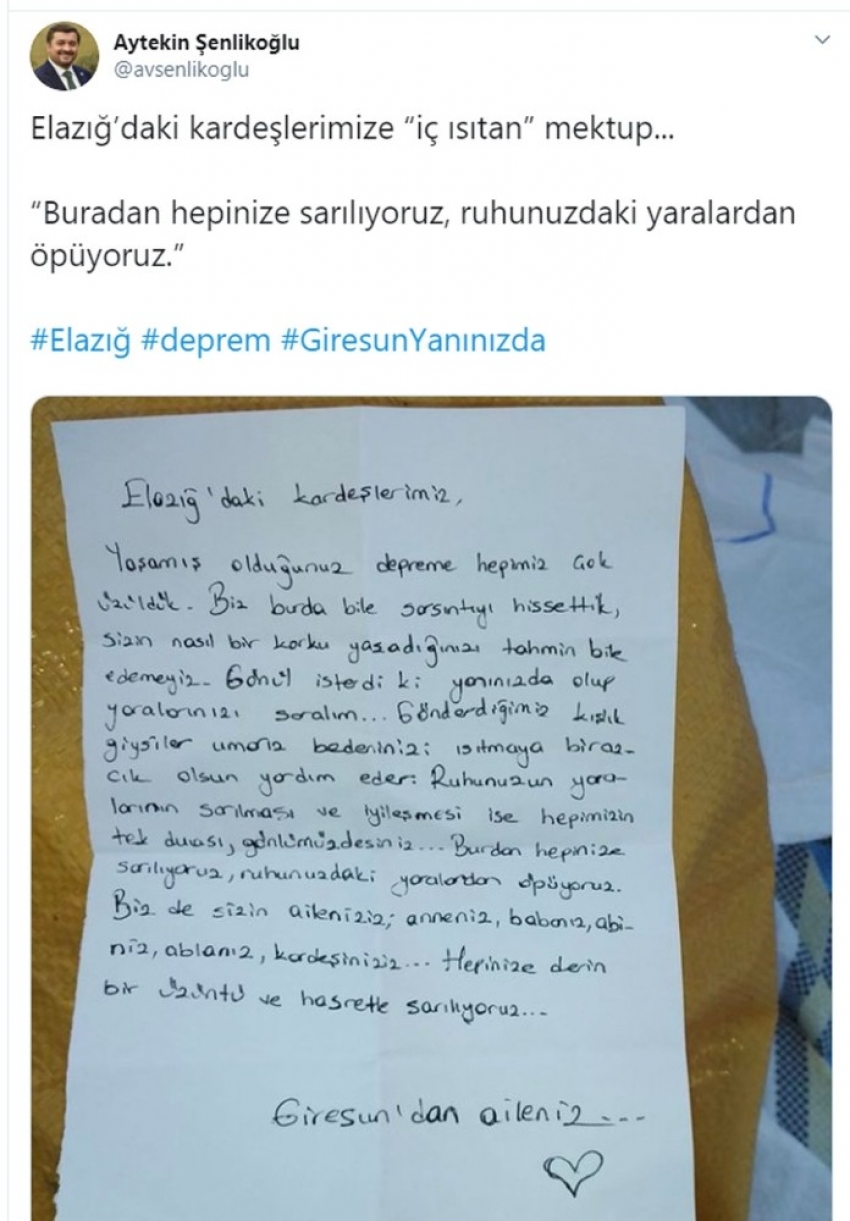 Aytekin Şenlikoğlu
@avsenlikoglu
Elazığ’daki kardeşlerimize “iç ısıtan” mektup...
“Buradan hepinize sarılıyoruz, ruhunuzdaki yaralardan
öpüyoruz.”
#Elazığ #deprem #GiresunYanınızda
Elazığ'daki kardeşlerimiz,
Yaşamış olduğunuz depreme hepimiz çok
üzüldük. Biz burda bile sarsıntıyı hissettik,
sizin nasıl bir korku yaşadığınızı tahmin bile
edemeyiz. Gönül isterdi ki yanınızda olup
yaralarınızı saralım... Gönderdiğimiz kışlık
giysiler umarız bedeninizi ısıtmaya biraz-
cık olsun yardım eder. Ruhunuzun yara-
larının sarılması ve iyileşmesi ise hepimizin
tek duası, gönlümüzdesiniz... Burdan hepinize
sarılıyoruz, ruhunuzdaki yaralardan öpüyoruz.
Biz de sizin aileniziz; anneniz, babanız, abi-
niz, ablanız, kardeşiniziz... Hepinize derin
bir üzüntü ve hasretle sarılıyoruz...
Giresun'dan aileniz...